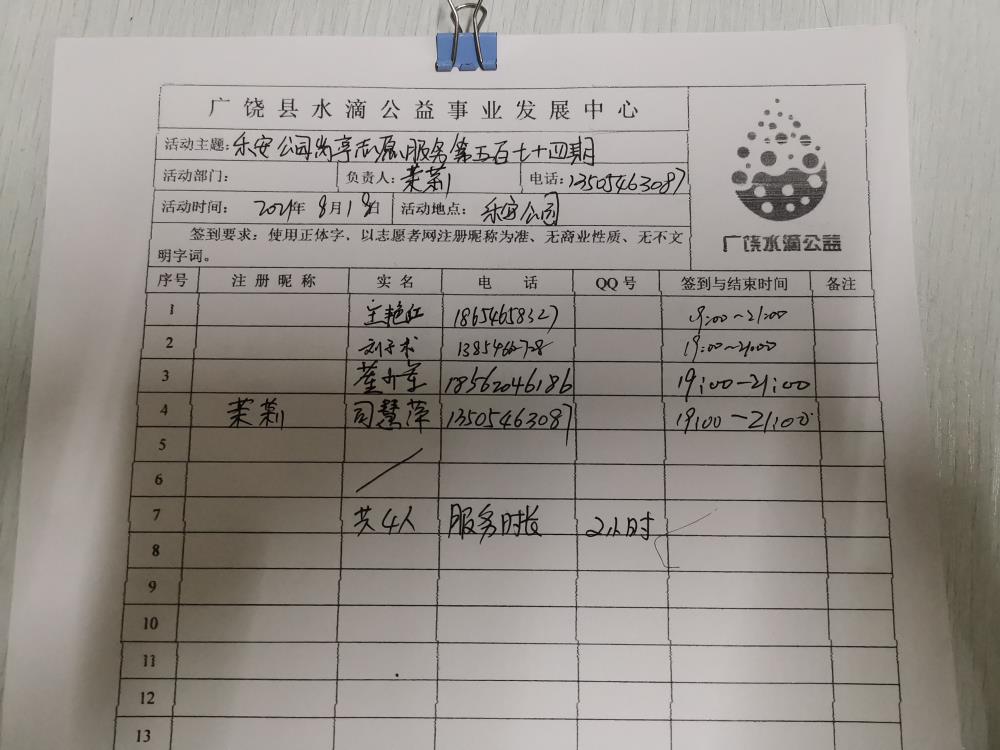 广饶县水滴公益事业发展中心
活动主题: 乐安公园岗亭志愿服务第五百七十四期
活动部门: 负责人: 茉莉 电话: 13505463087
活动时间: 2021年8月18日 活动地点: 乐安公园
广饶水滴公益
签到要求：使用正体字、以志愿者网注册昵称为准、无商业性质、无不文
明字词。
序号 注册昵称 实名 电话 QQ号 签到与结束时间 备注
1 艳红 18654658327 19:00~21:00
2 刘子术 19:00~21:00
3 18562046186 19:00-21:00
4 茉莉 司慧萍 13505463087 19:00-21:00
5
6
7 共4人 服务时长 2小时
8
9
10
11
12
13